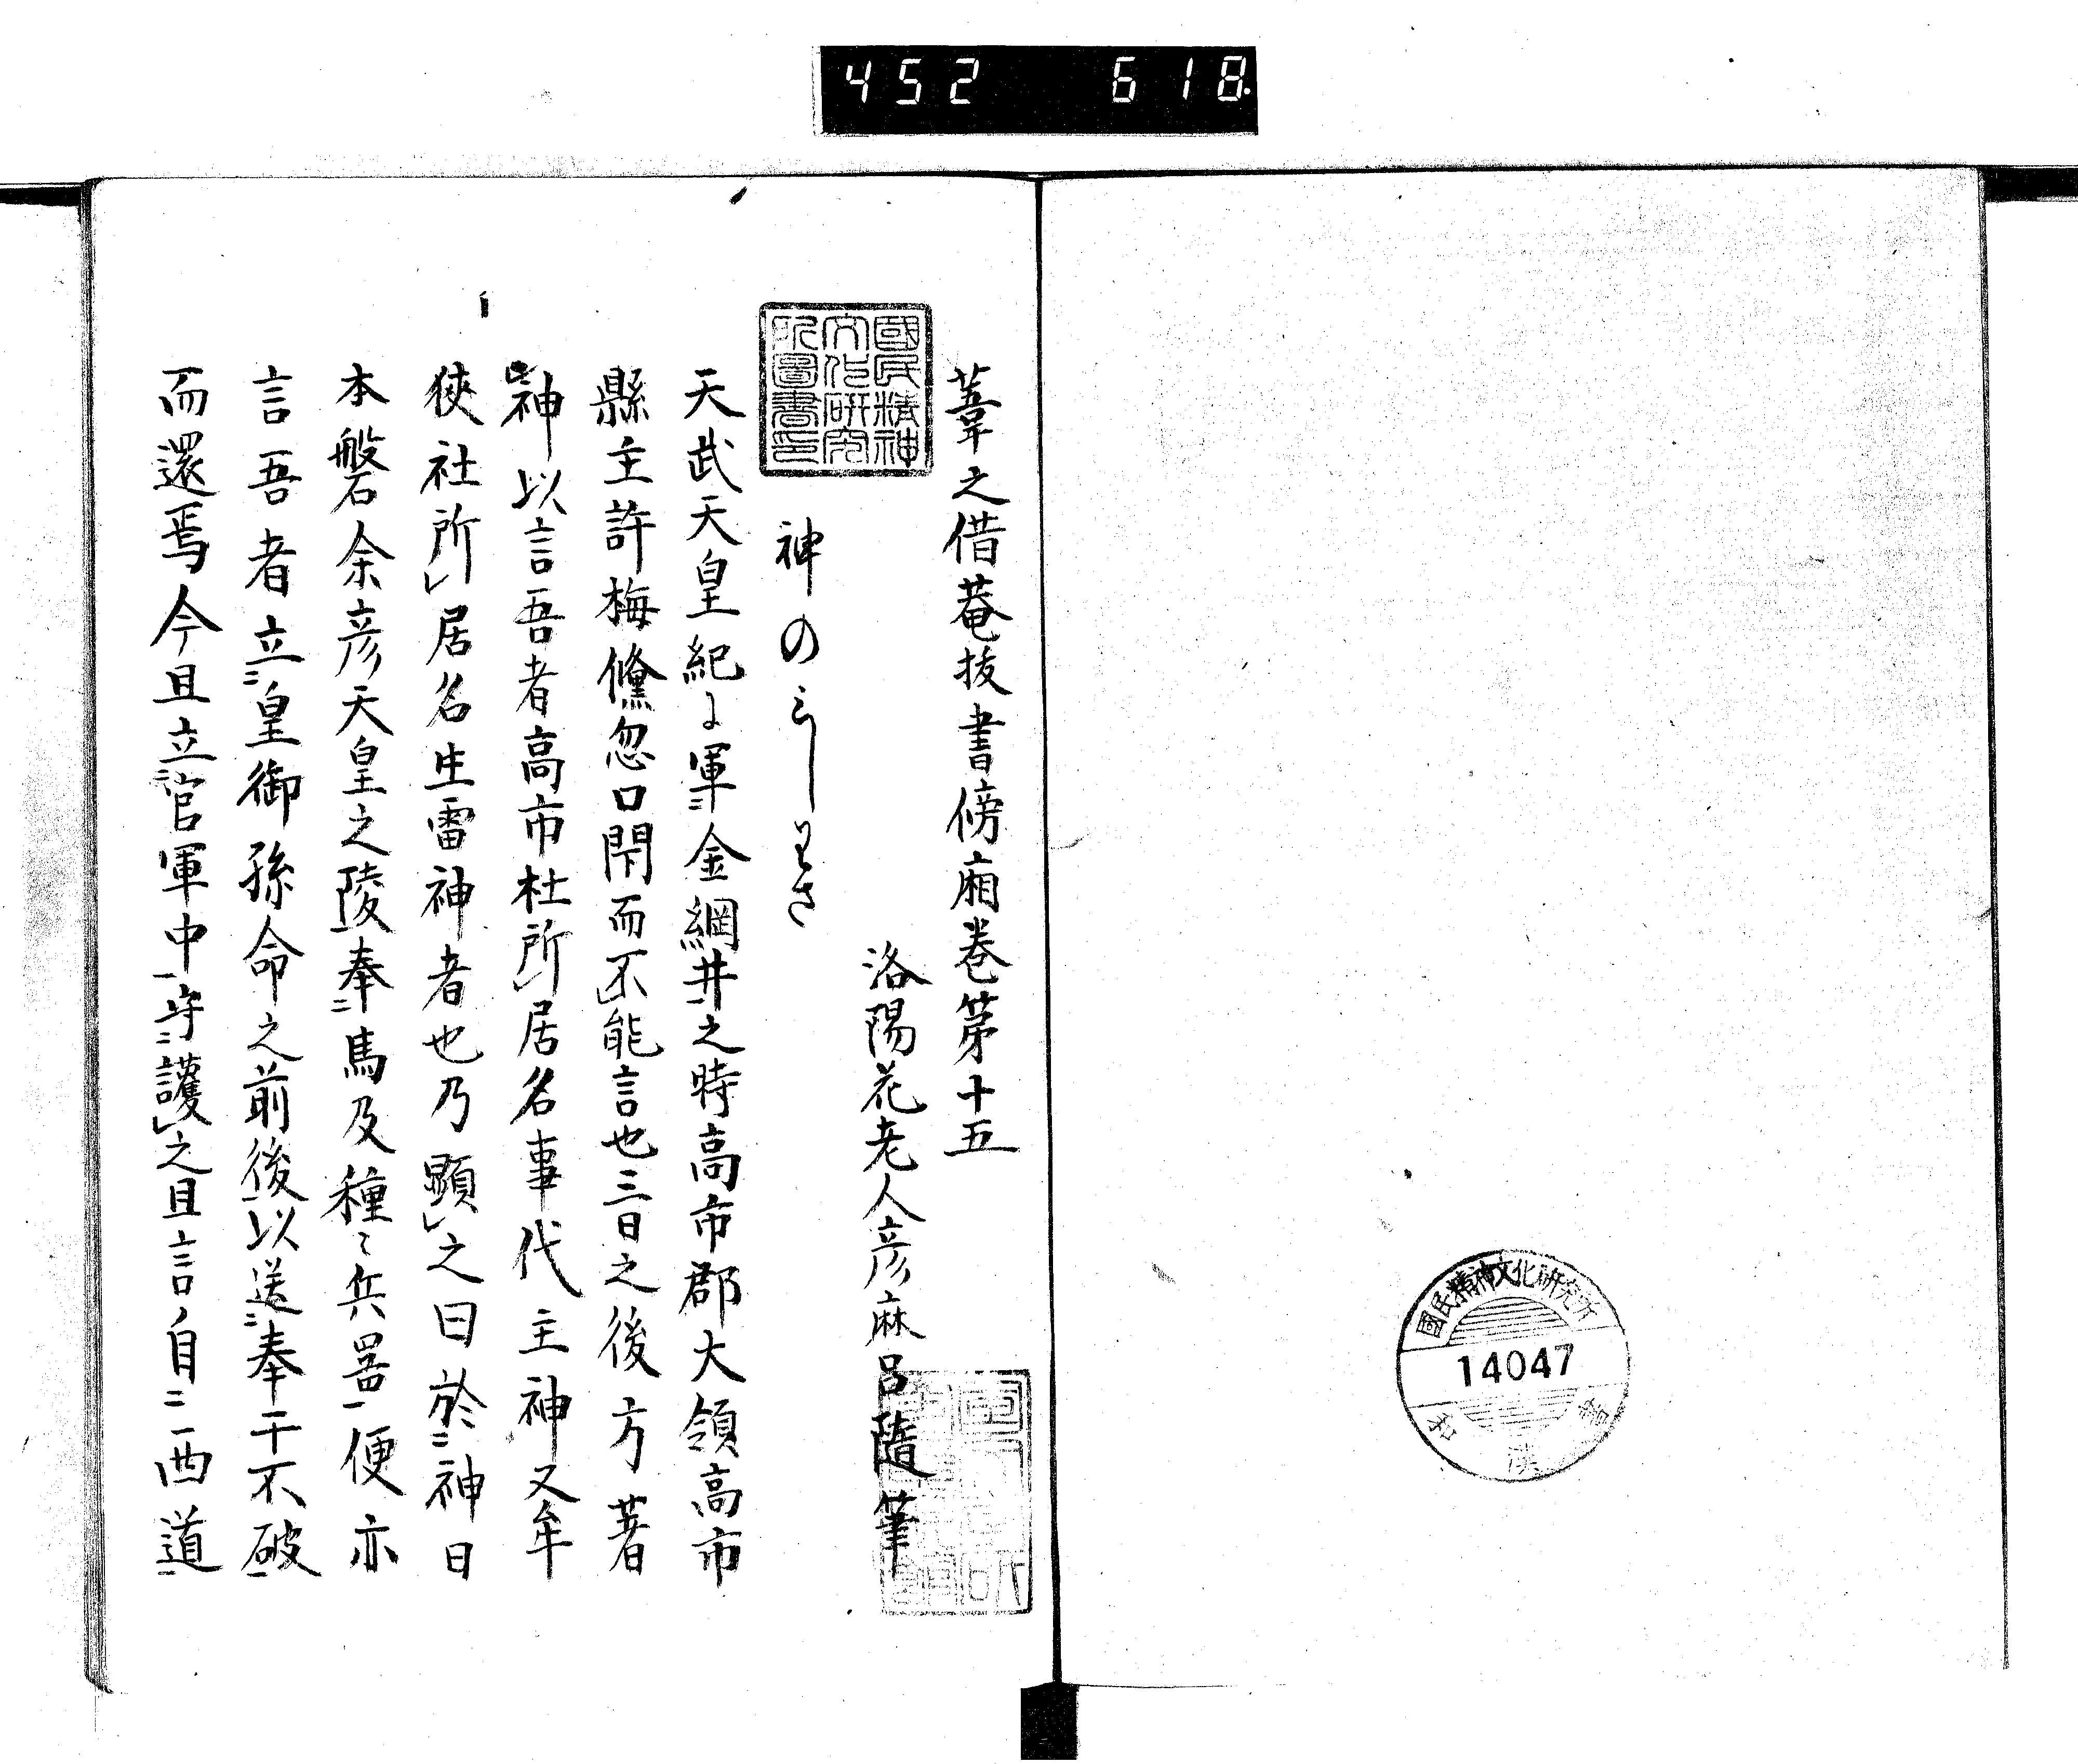 452 618.
國民精神文化研究所
14047
葦之借菴抜書傍廂巻第十五
國民精神
文化研究
所圖書印
洛陽花老人彦麻呂隨筆
神の
天武天皇紀ニ軍金綱井之時高市郡大領高市
縣主許梅儵忽口閇而不能言也三日之後方著
神以言吾者高市社所居名事代主神又牟
狹社所居名生雷神者也乃顯之曰於神日
本磐余彦天皇之陵奉馬及種〻兵器便亦
言吾者立皇御孫命之前後以送奉于不破
而還焉今且立官軍中守護之且言自西道